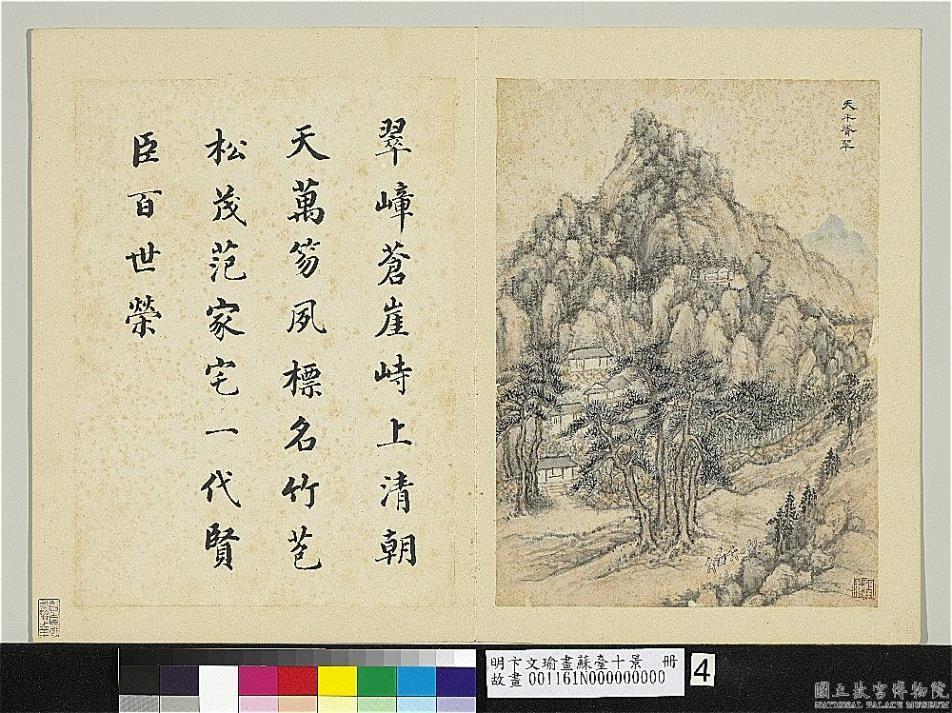 天平聳翠
翠嶂蒼崖峙上清朝
天萬笏夙標名竹苞
松茂范家宅一代賢
臣百世榮
明卞文瑜畫蘇臺十景 冊
故畫001161N000000000
4
國立故宮博物院
NATIONAL PALACE MUSEUM